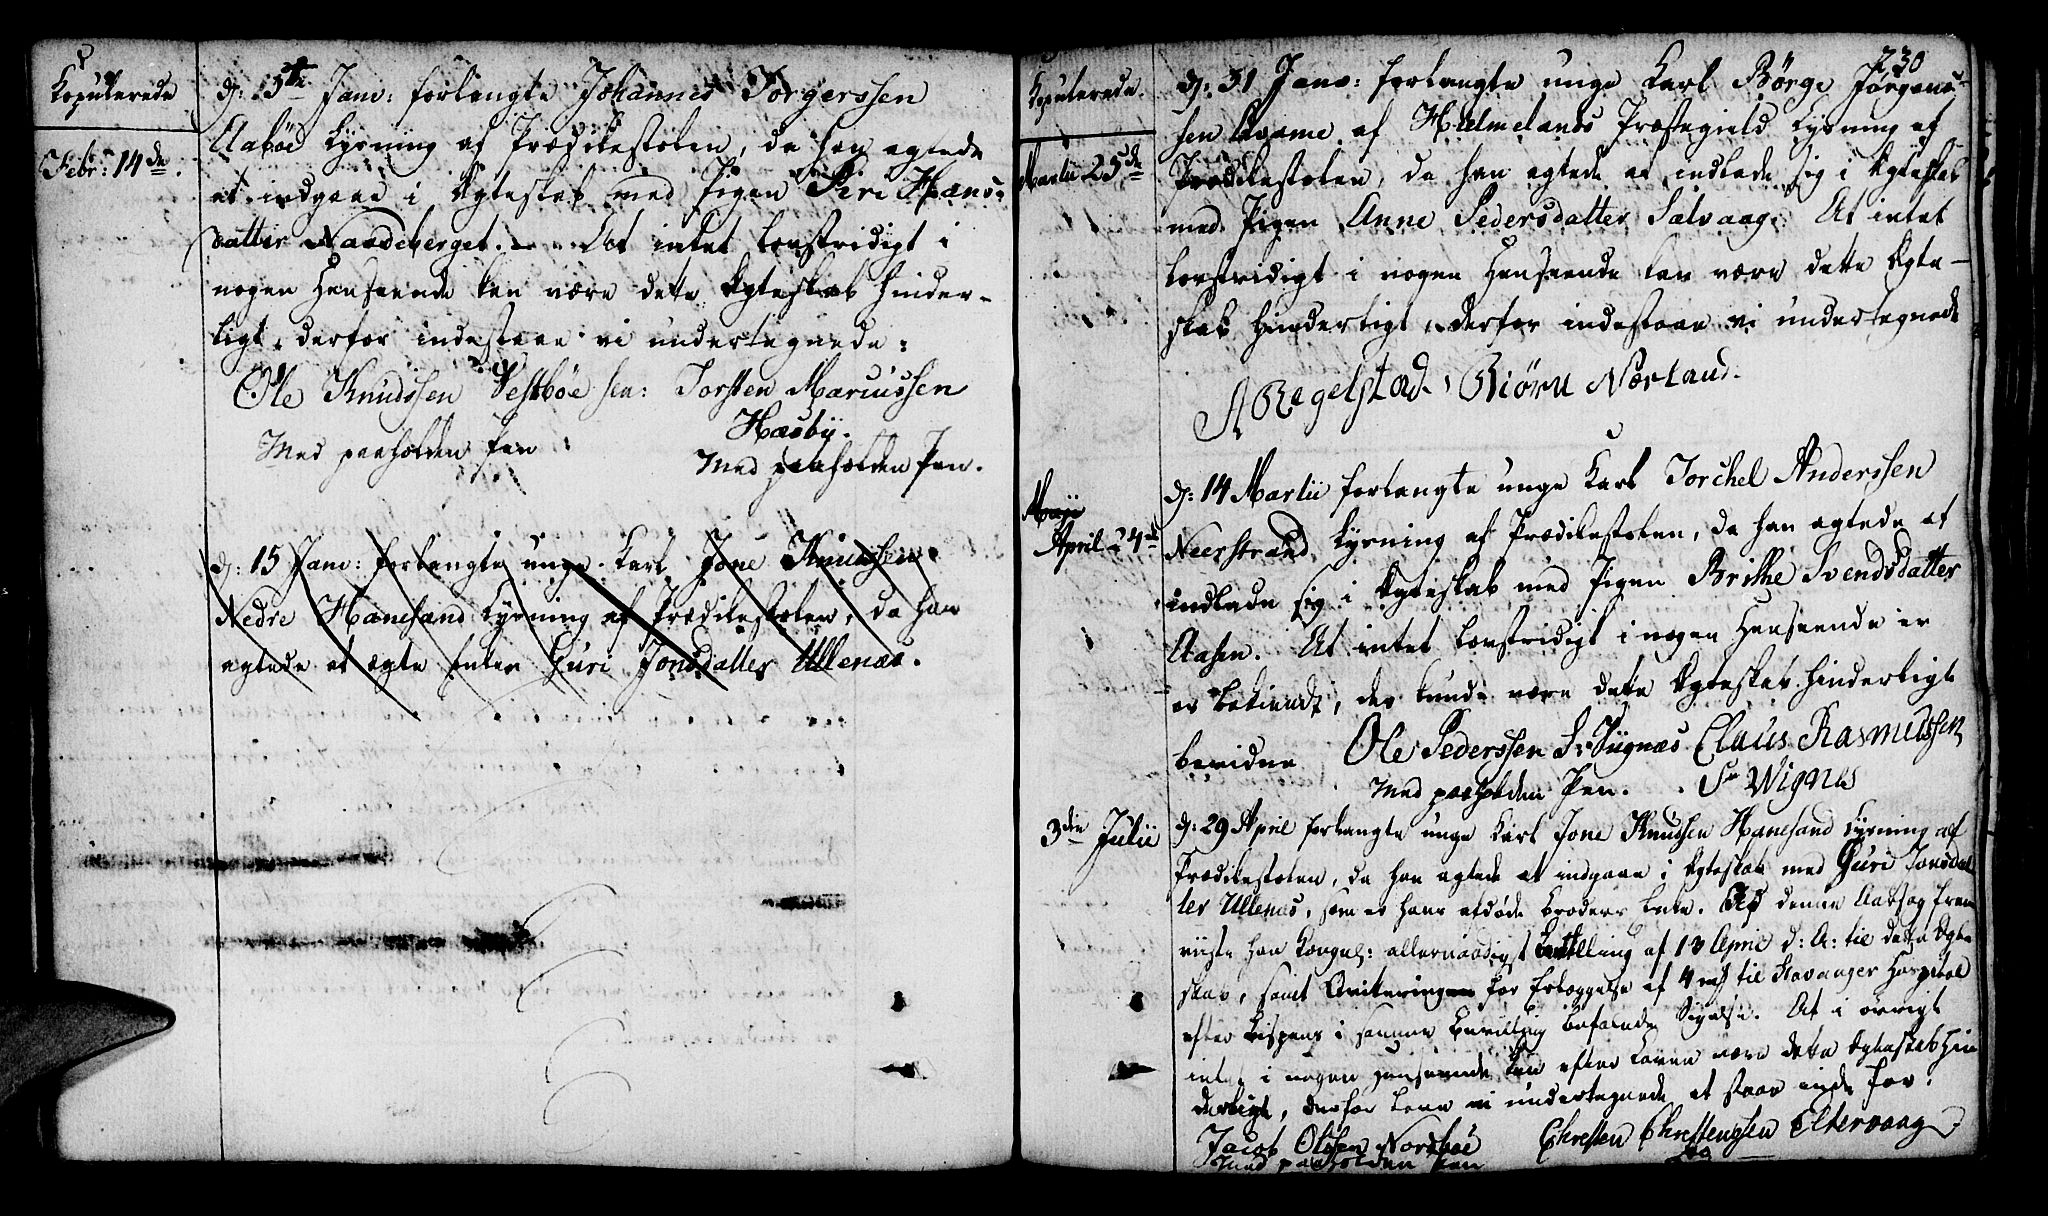 Kopulerede
Febr: 14de.
d: 5te Janv: forlangte Johannes Torgerssen
Aabøe Lysning af Prædikestolen, da han agtede
at indgaae i Ægteskab med Pigen Siri Hans-
datter Naadeberget. At intet lovstridigt i
nogen Henseende kan være dette Ægteskab hinder-
ligt, derfor indestaae vi undertegnede:
Ole Knudssen Vestbøe sen: Torsten Marcussen
Hæsby.
Med paaholden Pen Med paaholden Pen.
d: 15 Janv: forlangte unge Karl Jone Knudssen
Nedre Hanesand Lysning af Prædikestolen, da han
agtede at ægte Enken Guri Jonsdatter Ullenæs.
230
Kopulerede.
Martii 25de
d: 31 Janv: forlangte unge Karl Børge Jørgens-
sen af Hielmelands Præstegield Lysning af
Prædikestolen, da han agtede at indlade sig i Ægteskab
med Pigen Anne Pedersdatter Salvaag. At intet
lovstridigt i nogen Henseende kan være dette Ægte-
skab hinderligt, derfor indestaae vi undertegnede
A Regelstad. Biørn Nærland.
Maji
April 24de
d: 14 Martii forlangte unge Karl Torchel Anderssen
Neerstrand Lysning af Prædikestolen, da han agtede at
indlade sig i Ægteskab med Pigen Brithe Svendsdatter
Aasen. At intet lovstridigt i nogen Henseende er
os bekiendt, der kunde være dette Ægteskab hinderligt
bevidne Ole Pederssen Claus Rasmussen
Med paaholden Pen. Wignes
3die Julii
d: 29 April forlangte unge Karl Jone Knudsen Hanesand Lysning af
Prædikestolen, da han agtede at indgaae i Ægteskab med Guri Jonsdat
ter Ullenæs, som er hans afdøde Broders Enke. Til denne Aarsag frem
viiste han Kongel: allernaadigst Bevilling af 13 April d: A: til dette Ægte
skab, samt Qvitering for Erlæggelse af 4 til Stavanger Hospital
efter Bispens i samme Bevilling befalende Sigelse. At i øvrigt
intet i nogen Henseende kan efter Loven være dette Ægteskab hin
derligt, derfor love vi undertegnede at staae inde for.
Jacob Olsen Nordbøe Christen Christenssen Eltervaag
Med paaholden Pen